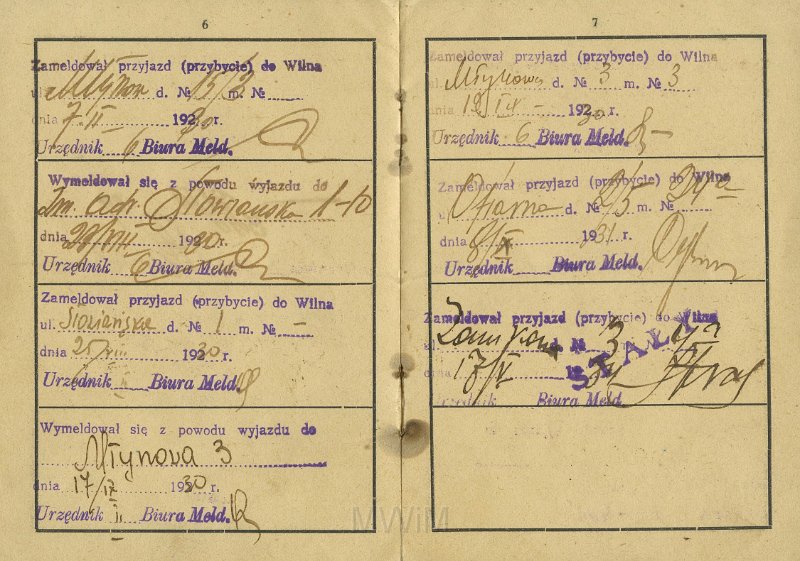 6
Zameldował przyjazd (przybycie) do Wilna
ul. Młynowa d. № 15/3 m. №
dnia 7.II 1930 r.
Urzędnik 6 Biura Meld.
Wymeldował się z powodu wyjazdu do
Zm. adr. Słowiańska 1-10
dnia 1930 r.
Urzędnik 6 Biura Meld.
Zameldował przyjazd (przybycie) do Wilna
ul. Słowiańska d. № 1 m. № —
dnia 25/VIII 1930 r.
Urzędnik Biura Meld.
Wymeldował się z powodu wyjazdu do
Młynova 3
dnia 17/IX 1930 r.
Urzędnik II Biura Meld.
7
Zameldował przyjazd (przybycie) do Wilna
ul. Młynowa d. № 3 m. № 3
dnia 19/IX 1930 r.
Urzędnik 6 Biura Meld.
Zameldował przyjazd (przybycie) do Wilna
ul. d. № 2/5 m. № 24a
dnia 8/X 1931 r.
Urzędnik Biura Meld.
Zameldował przyjazd (przybycie) do Wilna
ul. d. № 3
STAŁY
dnia 17/IV 1934
Urzędnik Biura Meld
MWiM